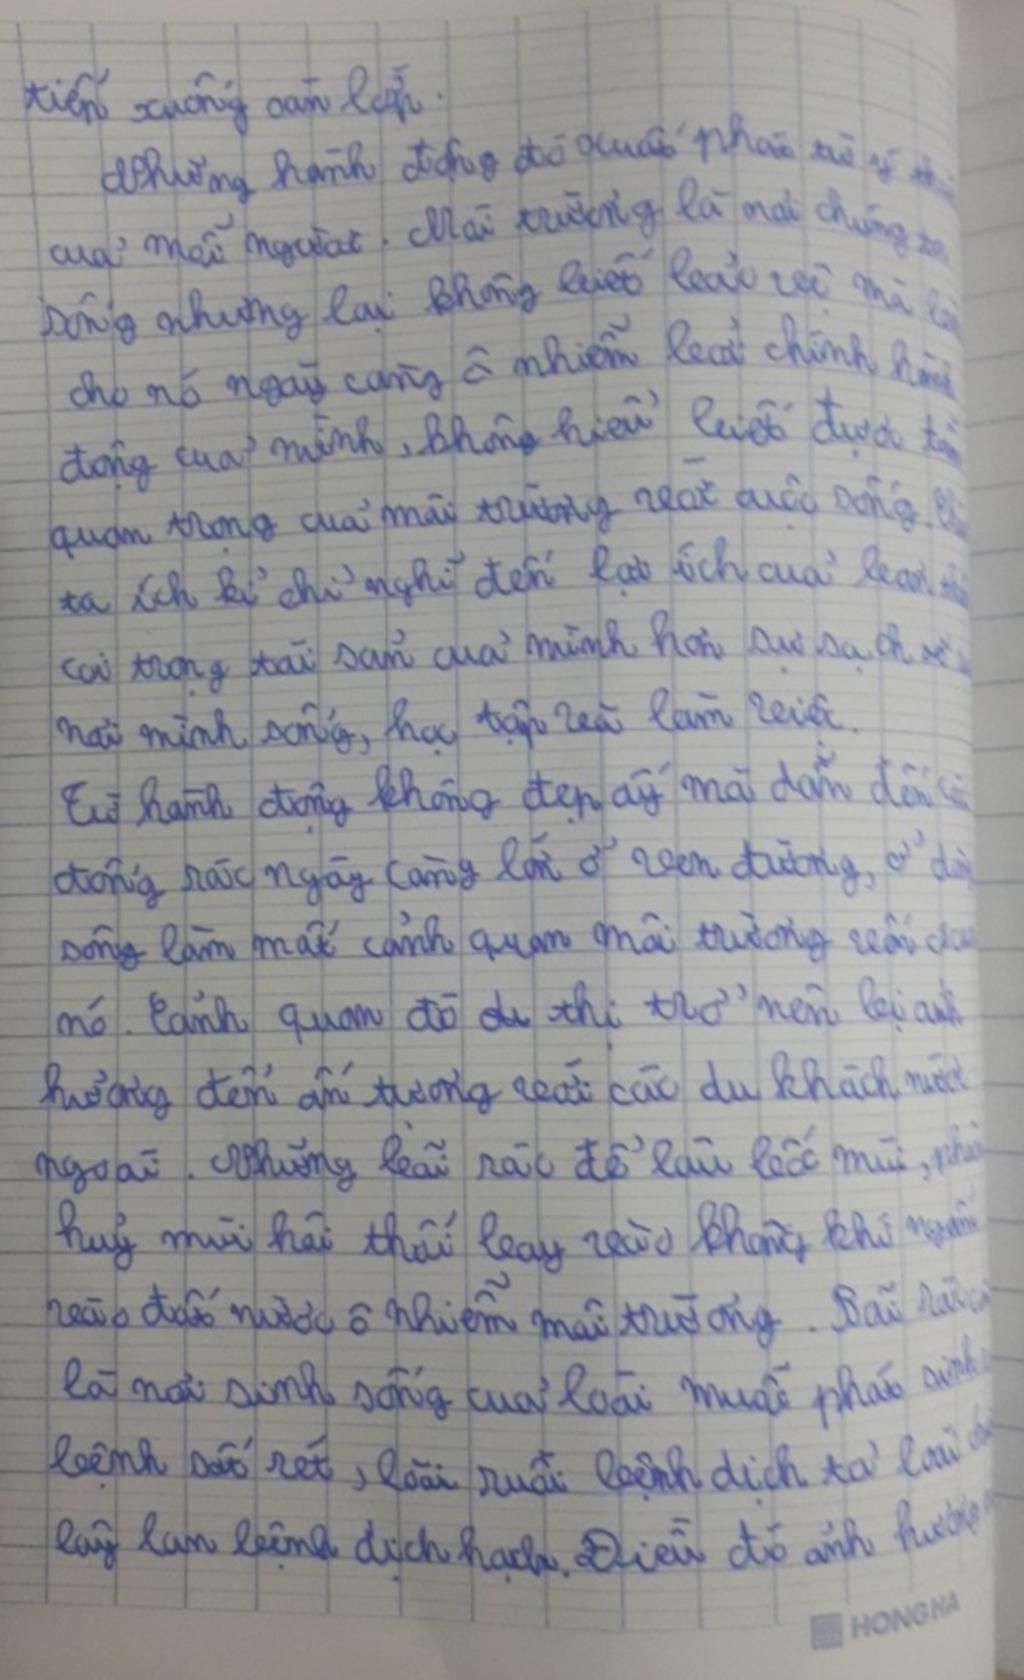 tiến xuống oan lẩn.
Những hành động đó xuất phát từ ý
của mỗi người. Môi trường là nơi chúng ta
sống nhưng lại không biết bảo vệ mà làm
cho nó ngày càng ô nhiễm bởi chính hành
động của mình, không hiểu biết được tầm
quan trọng của môi trường với cuộc sống.
ta ích kỉ chỉ nghĩ đến lợi ích của bản thân
coi trọng tài sản của mình hơn sự sạch sẽ
nơi mình sống, học tập và làm việc.
Từ hành động không đẹp ấy mà dẫn đến các
đống rác ngày càng lớn ở ven đường, ở
sông làm mất cảnh quan môi trường vốn
nó. Cảnh quan đô du thị trở nên bị ảnh
hưởng đến ấn tượng với các du khách nước
ngoài. Những bãi rác để lâu bốc mùi, phân
huỷ mùi hôi thối bay vào không khí ngấm
vào đất nước ô nhiễm môi trường. Bãi rác
là nơi sinh sống của loài muỗi phát sinh
bệnh sốt rét, loài ruồi bệnh dịch tả loài
lây lan bệnh dịch hạch. Điều đó ảnh hưởng
HONG HA